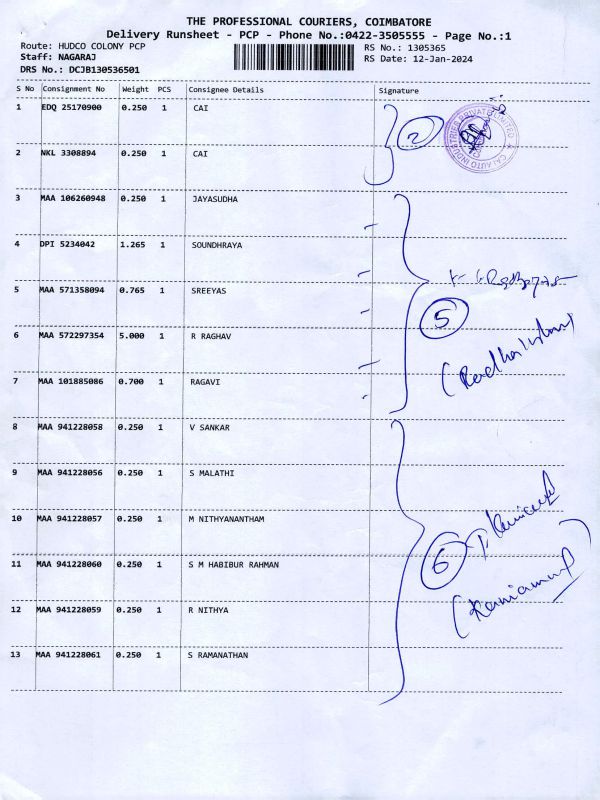 THE PROFESSIONAL COURIERS, COIMBATORE
Delivery Runsheet - PCP - Phone No.:0422-3505555 - Page No.:1
Route: HUDCO COLONY PCP
RS No.: 1305365
Staff: NAGARAJ
RS Date: 12-Jan-2024
DRS No.: DCJB130536501
S No Consignment No Weight PCS Consignee Details Signature
1 EDQ 25170900 0.250 1 CAI
2
CAI AUTO INDUSTRIES PRIVATE LIMITED
2 NKL 3308894 0.250 1 CAI
3 MAA 106260948 0.250 1 JAYASUDHA
4 DPI 5234042 1.265 1 SOUNDHRAYA
5 MAA 571358094 0.765 1 SREEYAS
5
6 MAA 572297354 5.000 1 R RAGHAV
7 MAA 101885086 0.700 1 RAGAVI
8 MAA 941228058 0.250 1 V SANKAR
9 MAA 941228056 0.250 1 S MALATHI
10 MAA 941228057 0.250 1 M NITHYANANTHAM
11 MAA 941228060 0.250 1 S M HABIBUR RAHMAN
6
12 MAA 941228059 0.250 1 R NITHYA
13 MAA 941228061 0.250 1 S RAMANATHAN